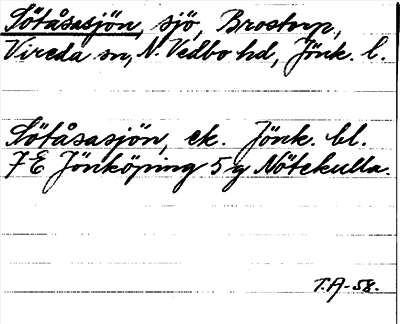 Sötåsasjön, sjö, Brostorp,
Vireda sn, N. Vedbo hd, Jönk. l.
Sötåsasjön, ek. Jönk. bl.
7E Jönköping 5 g Nötekulla.
T.A-58.